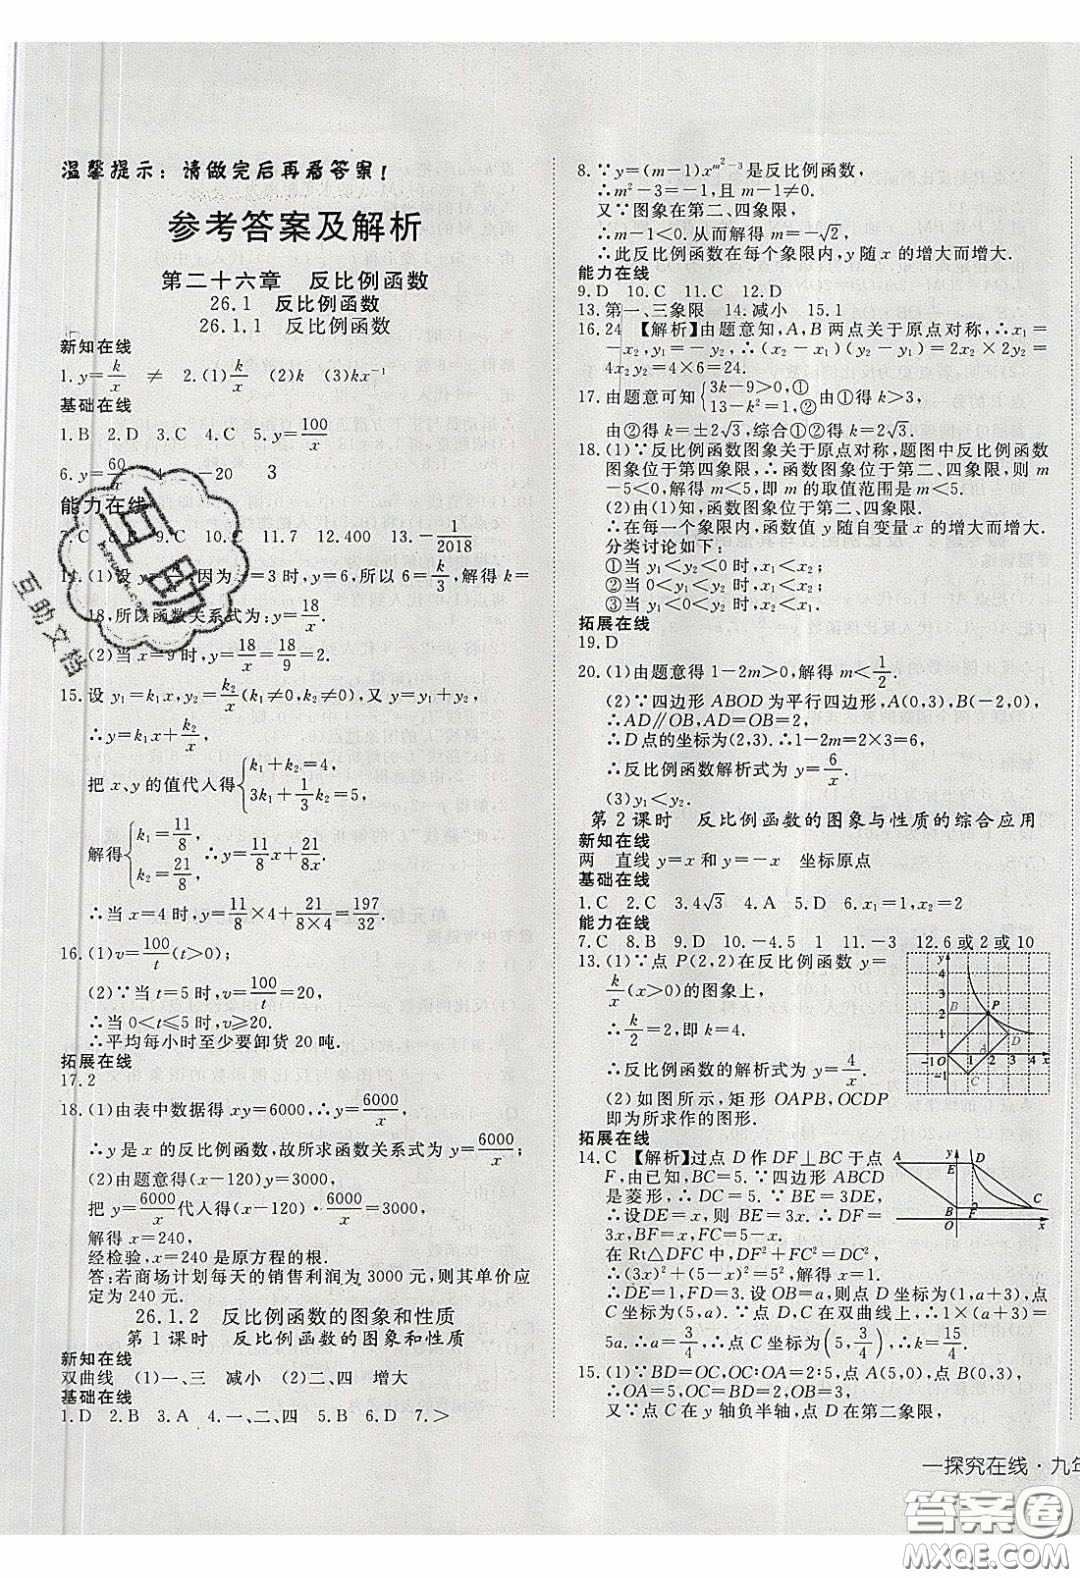 温馨提示：请做完后再看答案！
参考答案及解析
第二十六章 反比例函数
26.1 反比例函数
26.1.1 反比例函数
新知在线
1. y=k/x ≠ 2.(1)k/x (2)k (3)kx⁻¹
基础在线
1.B 2.D 3.C 4.C 5.y=100/x
6.y=60/x 4 -20 3
能力在线
7.C 8. 9.C 10.C 11.7 12.400 13.-1/2018
14.(1)设 因为 =3时,y=6,所以6=k/3,解得k=
18,所以函数关系式为:y=18/x.
(2)当x=9时,y=18/x=18/9=2.
15.设y₁=k₁x,y₂=k₂/x(k₁≠0,k₂≠0),又y=y₁+y₂,
∴y=k₁x+k₂/x.
把x、y的值代人得{k₁+k₂=4, 3k₁+1/3k₂=4.
解得{k₁=11/8, k₂=21/8. ∴y=11/8x+21/8x.
∴当x=4时,y=11/8×4+21/(8×4)=197/32.
16.(1)v=100/t(t>0);
(2)∵当t=5时,v=100/5=20.
∴当0<t≤5时,v≥20.
∴平均每小时至少要卸货20吨.
拓展在线
17.2
18.(1)由表中数据得xy=6000,∴y=6000/x,
∴y是x的反比例函数,故所求函数关系式为y=6000/x;
(2)由题意得(x-120)y=3000,
把y=6000/x代人得(x-120)·6000/x=3000,
解得x=240,
经检验,x=240是原方程的根.
答:若商场计划每天的销售利润为3000元,则其单价应
定为240元.
26.1.2 反比例函数的图象和性质
第1课时 反比例函数的图象和性质
新知在线
双曲线 (1)一、三 减小 (2)二、四 增大
基础在线
1.D 2.B 3.A 4.一、二、四 5.B 6.D 7.>
8.∵y=(m-1)x^(m²-3)是反比例函数,
∴m²-3=-1,且m-1≠0.
又∵图象在第二、四象限,
∴m-1<0.从而解得m=-√2,
∴此反比例函数在每个象限内,y随x的增大而增大.
能力在线
9.D 10.C 11.C 12.D
13.第一、三象限 14.减小 15.1
16.24 【解析】由题意知,A,B两点关于原点对称,∴x₁=
-x₂,y₁=-y₂,∴(x₂-x₁)(y₂-y₁)=2x₂×2y₂=
4x₂y₂=4×6=24.
17.由题意可知{3k-9>0,① 13-k²=1,② 由①得k>3,
由②得k=±2√3,综合①②得k=2√3.
18.(1)∵反比例函数图象关于原点对称,题图中反比例函数
图象位于第四象限,∴函数图象位于第二、四象限,则m
-5<0,解得m<5,即m的取值范围是m<5.
(2)由(1)知,函数图象位于第二、四象限.
∴在每一个象限内,函数值y随自变量x的增大而增大.
分类讨论如下:
①当y₁<y₂<0时,x₁<x₂;
②当0<y₁<y₂时,x₁<x₂;
③当y₁<0<y₂时,x₂<x₁.
拓展在线
19.D
20.(1)由题意得1-2m>0,解得m<1/2.
(2)∵四边形ABOD为平行四边形,A(0,3),B(-2,0),
∴AD∥OB,AD=OB=2,
∴D点的坐标为(2,3).∴1-2m=2×3=6,
∴反比例函数解析式为y=6/x.
(3)y₁<y₂.
第2课时 反比例函数的图象与性质的综合应用
新知在线
两 直线y=x和y=-x 坐标原点
基础在线
1.C 2.C 3.4√3 4.A 5.D 6.x₁=1,x₂=2
能力在线
7.C 8.B 9.D 10.-4.5 1 11.-3 12.6或2或10
13.(1)∵点P(2,2)在反比例函数y=
k/x(x>0)的图象上,
∴k/2=2,即k=4.
∴反比例函数的解析式为y=4/x.
(2)如图所示,矩形OAPB,OCDP
即为所求作的图形.
拓展在线
14.C 【解析】过点D作DF⊥BC于点
F,由已知,BC=5.∵四边形ABCD
是菱形,∴DC=5.∵BE=3DE,
∴设DE=x,则BE=3x.∴DF=
3x,BF=x,FC=5-x.
在Rt△DFC中,DF²+FC²=DC²,
∴(3x)²+(5-x)²=5²,解得x=1.
∴DE=1,FD=3.设OB=a,则点D坐标为(1,a+3),点
C坐标为(5,a).∵点D,C在双曲线上,∴1×(a+3)=
5a.∴a=3/4,∴点C坐标为(5,3/4),∴k=15/4.
15.(1)∵BD=OC,OC:OA=2:5,点A(5,0),点B(0,3),
∴OA=5,OC=BD=2,OB=3,
又∵点C在y轴负半轴,点D在第二象限,
一探究在线·九年
互助
互助文档
答案圈
MXQE.COM